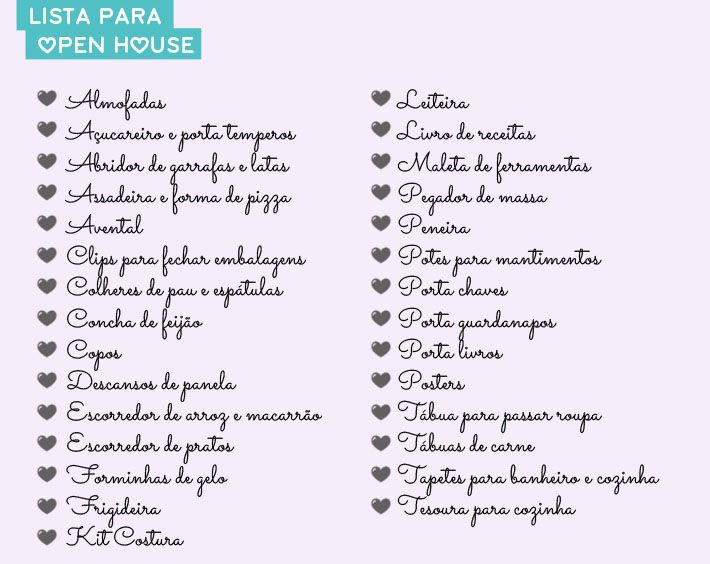 LISTA PARA
OPEN HOUSE
Almofadas
Açucareiro e porta temperos
Abridor de garrafas e latas
Assadeira e forma de pizza
Avental
Clips para fechar embalagens
Colheres de pau e espátulas
Concha de feijão
Copos
Descansos de panela
Escorredor de arroz e macarrão
Escorredor de pratos
Forminhas de gelo
Frigideira
Kit Costura
Leiteira
Livro de receitas
Maleta de ferramentas
Pegador de massa
Peneira
Potes para mantimentos
Porta chaves
Porta guardanapos
Porta livros
Posters
Tábua para passar roupa
Tábuas de carne
Tapetes para banheiro e cozinha
Tesoura para cozinha